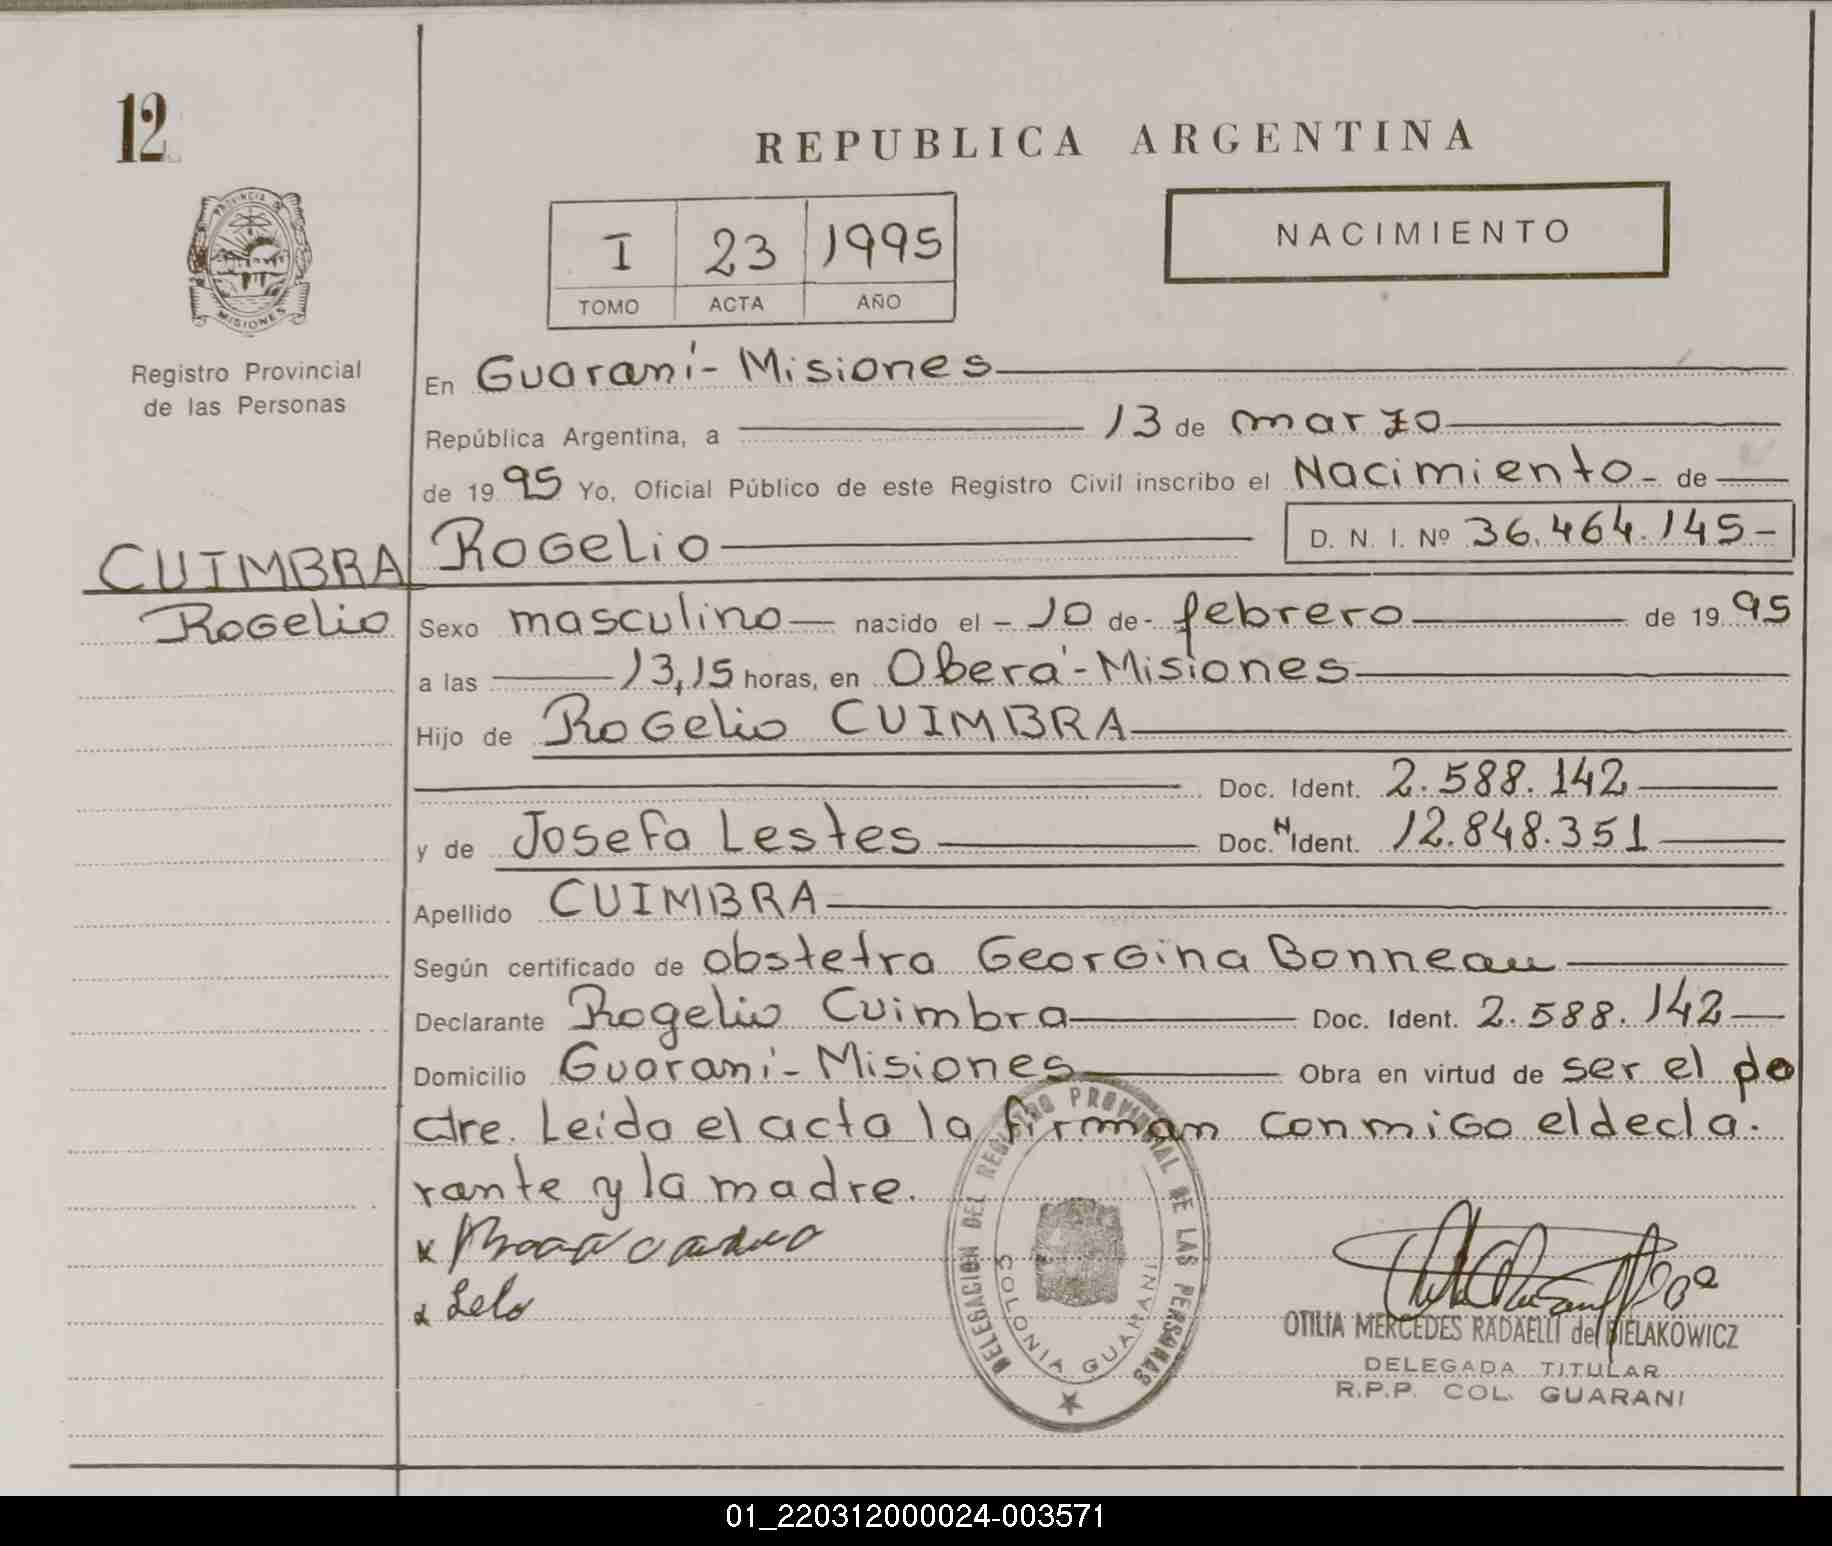 12
REPUBLICA ARGENTINA
PROVINCIA DE
MISIONES
Registro Provincial
de las Personas
I 23 1995
TOMO ACTA AÑO
NACIMIENTO
En Guaraní - Misiones
República Argentina, a 13 de marzo
de 19 95 Yo, Oficial Público de este Registro Civil inscribo el Nacimiento - de
CUIMBRA Rogelio D. N. I. Nº 36.464.145-
Rogelio Sexo masculino nacido el - 10 de - febrero de 19 95
a las 13,15 horas, en Oberá - Misiones
Hijo de Rogelio CUIMBRA
Doc. Ident. 2.588.142
y de Josefa Lestes Doc. N Ident. 12.848.351
Apellido CUIMBRA
Según certificado de obstetra Georgina Bonneau
Declarante Rogelio Cuimbra Doc. Ident. 2.588.142
Domicilio Guaraní - Misiones Obra en virtud de ser el pa
dre. Leida el acta la firman conmigo el decla.
rante y la madre.
DELEGACION DEL REGISTRO PROVINCIAL DE LAS PERSONAS
COLONIA GUARANI
OTILIA MERCEDES RADAELLI de BIELAKOWICZ
DELEGADA TITULAR
R.P.P. COL. GUARANI
01_220312000024-003571